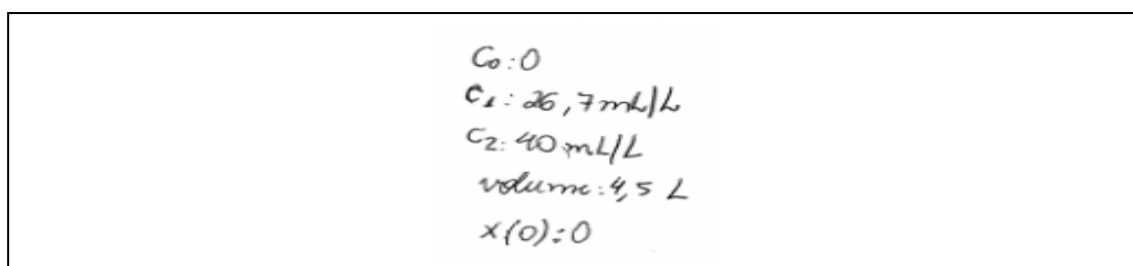 C₀: 0
C₁: 26,7 mL/L
C₂: 40 mL/L
volume: 4,5 L
x(0): 0